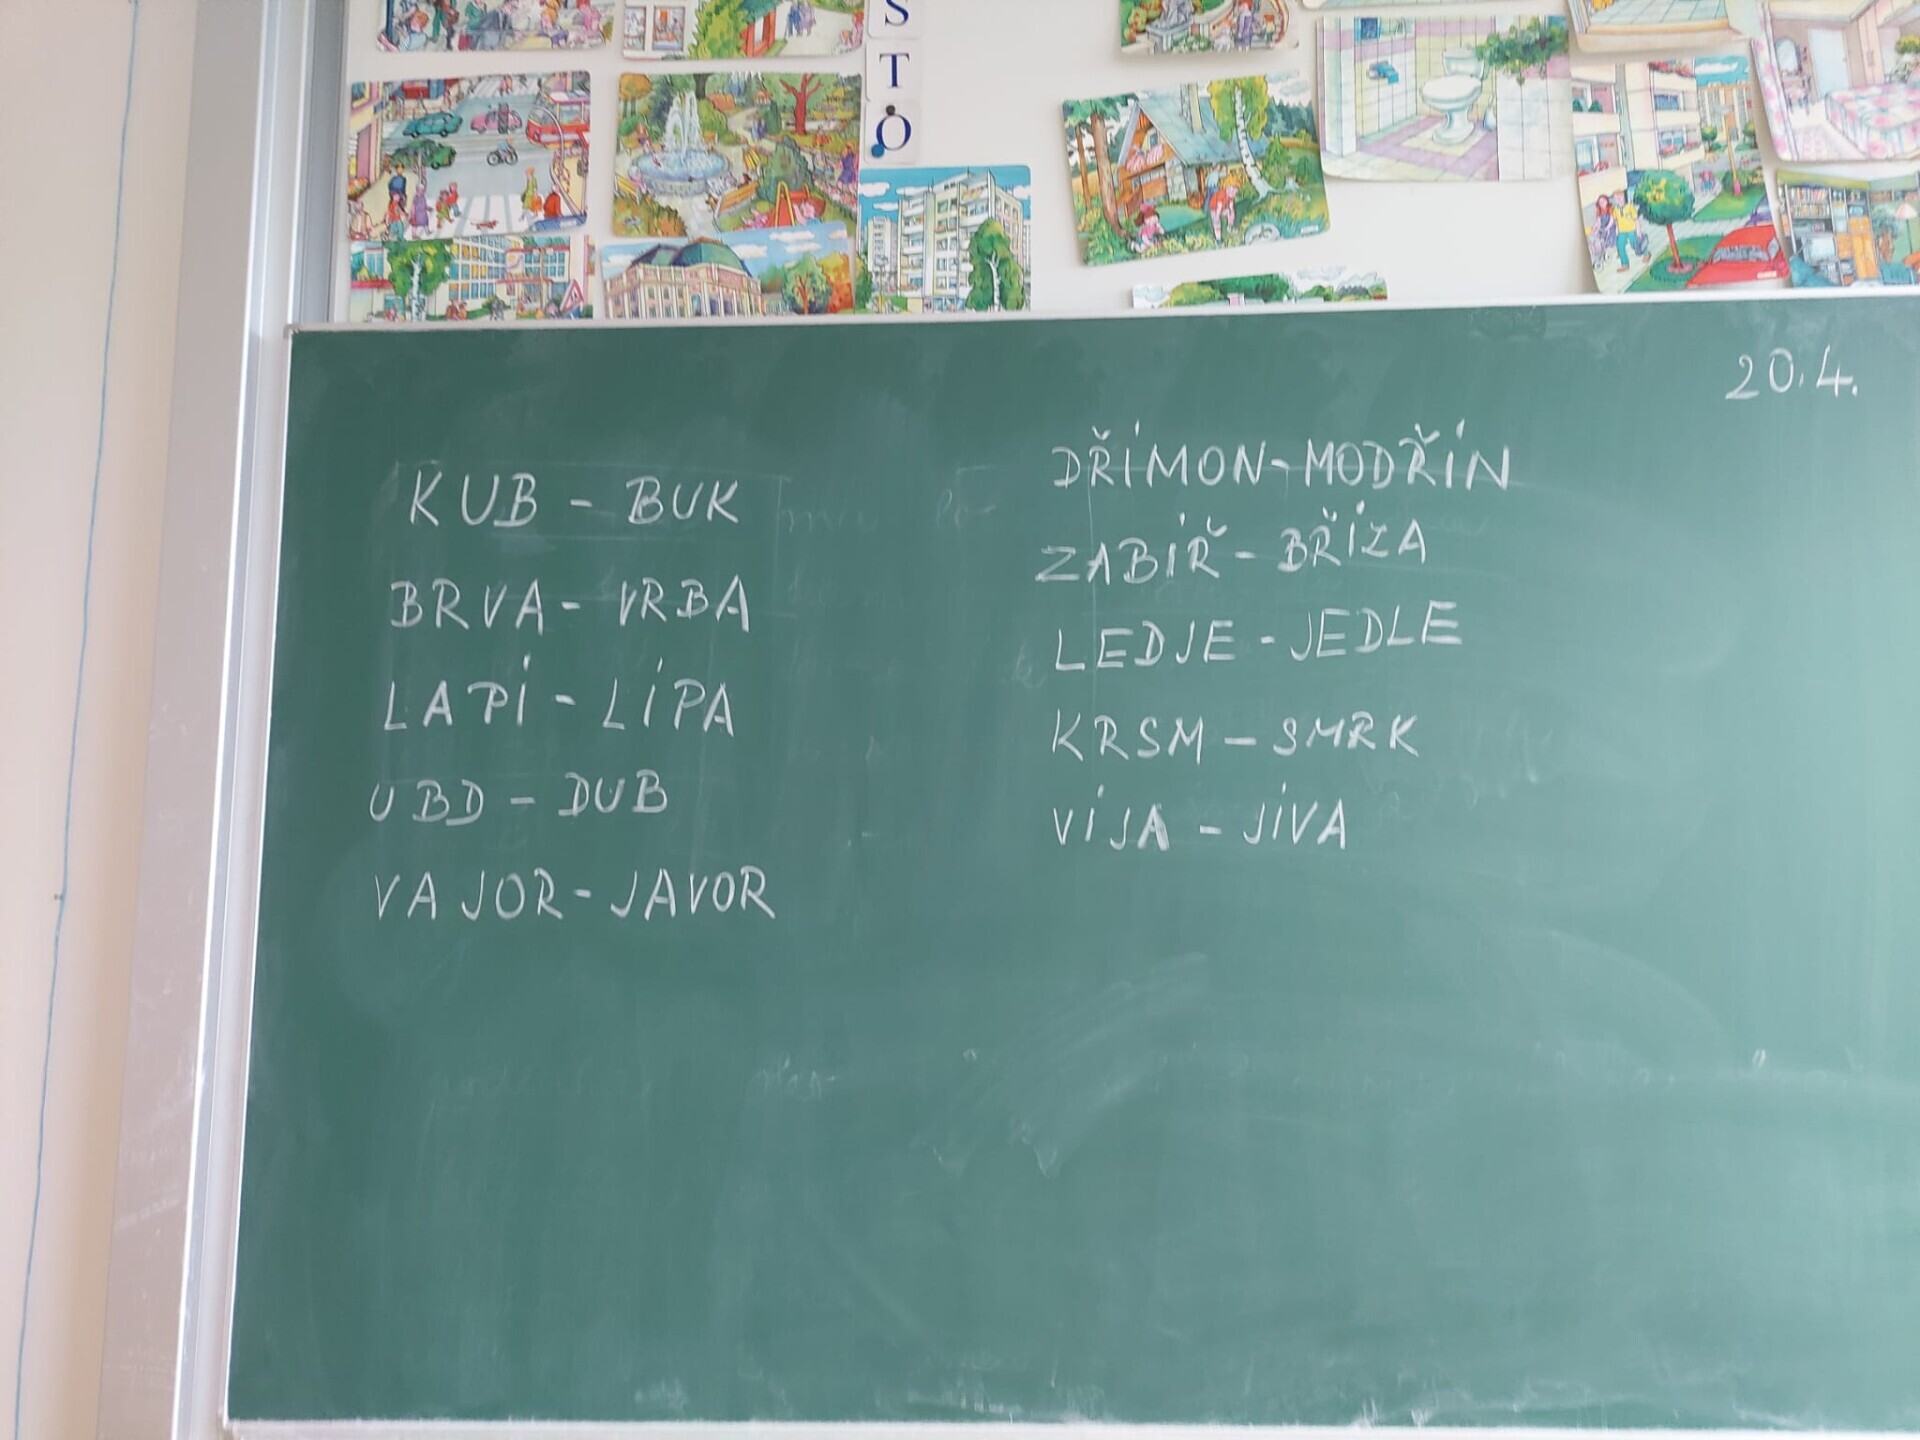 S
T
O
20.4.
KUB - BUK
BRVA - VRBA
LAPÍ - LÍPA
UBD - DUB
VAJOR - JAVOR
DŘÍMON - MODŘÍN
ZABÍŘ - BŘÍZA
LEDJE - JEDLE
KRSM - SMRK
VÍJA - JÍVA